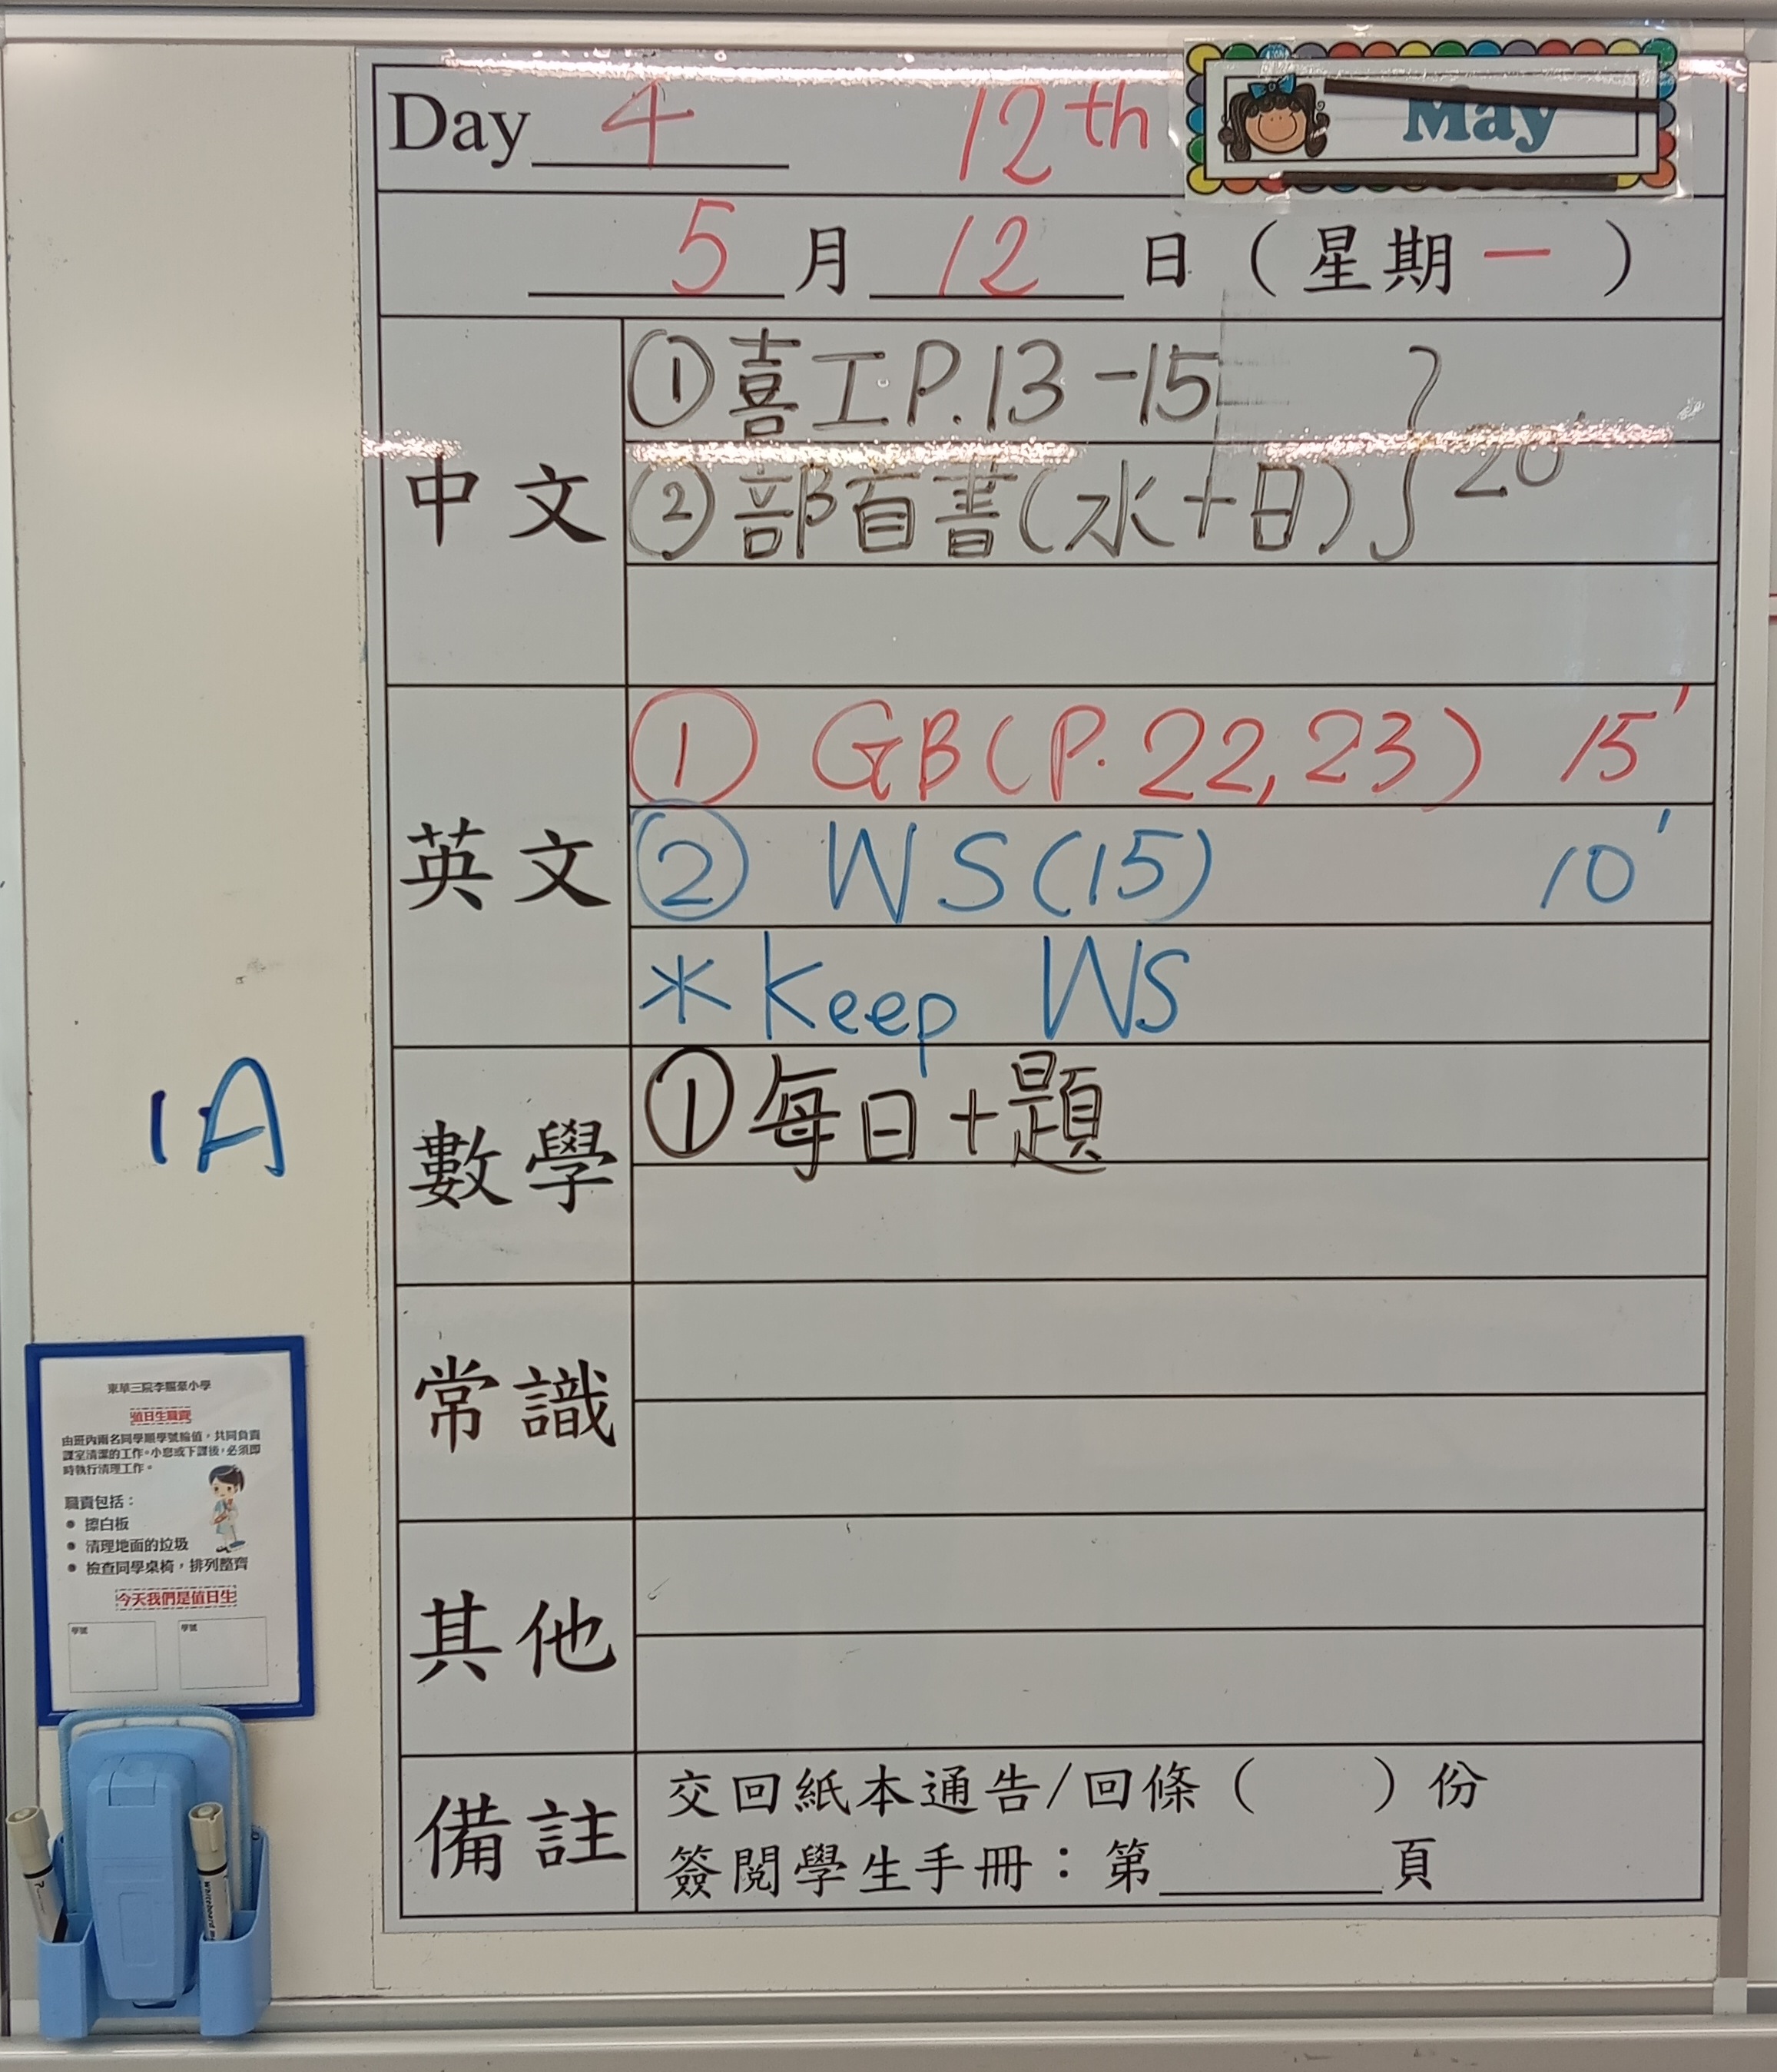 Day 4 12th May
5 月 12 日 ( 星期 一 )
中文
① 喜工P.13-15
② 部首書(水+日) } 20'
英文
① GB(P.22,23) 15'
② WS(15) 10'
* Keep WS
數學
① 每日十題
常識
其他
備註
交回紙本通告/回條 ( ) 份
簽閱學生手冊：第 頁
1A
值日生職責
由班內兩名同學順學號輪值，共同負責
課室清潔的工作。小息或下課後，必須即
時執行清理工作。
職責包括：
● 擦白板
● 清理地面的垃圾
● 檢查同學桌椅，排列整齊
今天我們是值日生
學號 學號